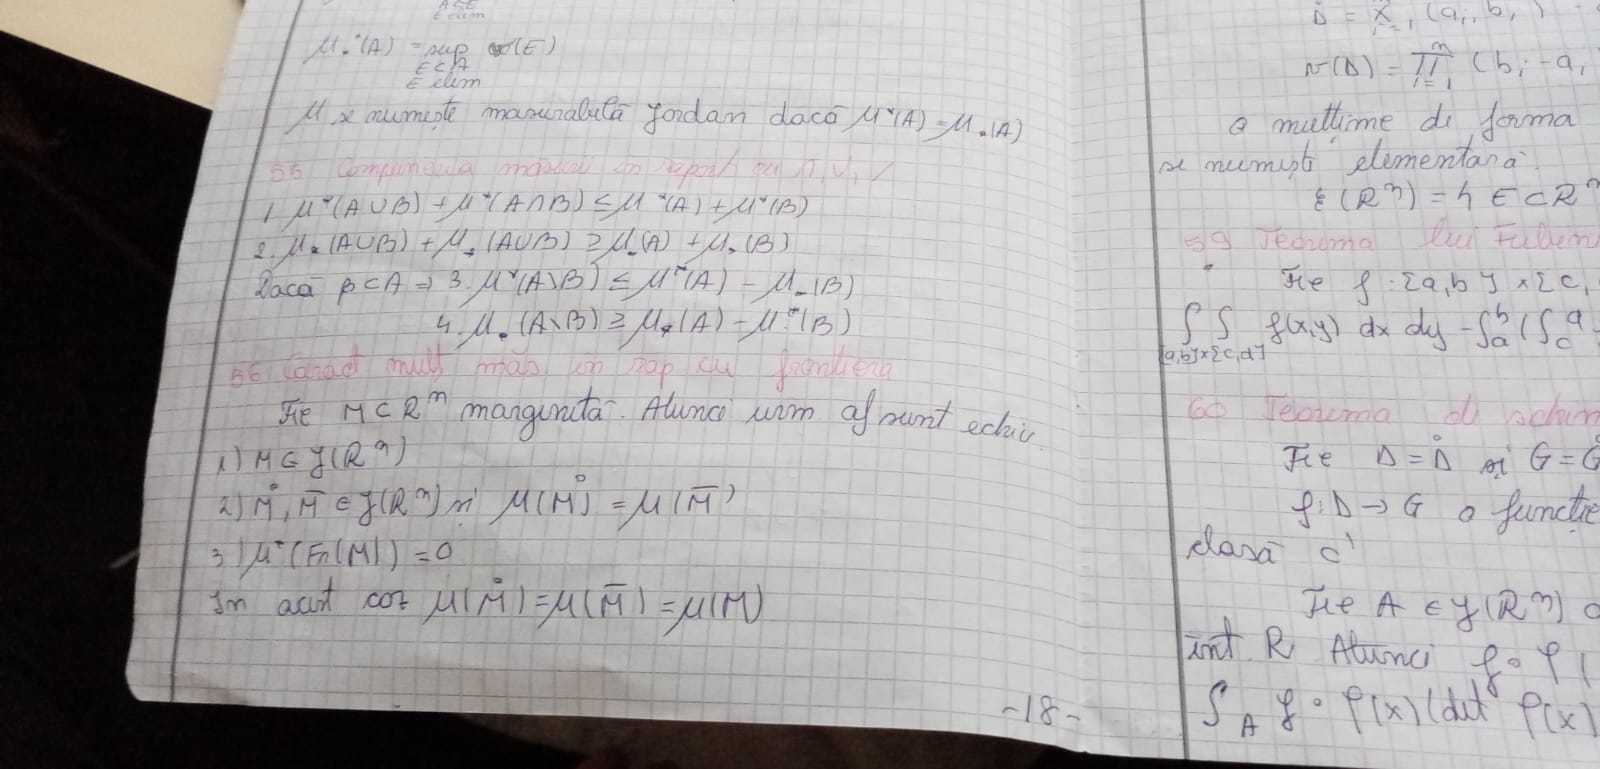 A⊂E
E elem
μ_*(A) = sup v(E)
E⊂A
E elem
M se numește masurabilă Jordan dacă μ*(A) = μ_*(A)
55 Comportarea măsurii în raport cu ∩, ∪, \
1. μ*(A∪B) + μ*(A∩B) ≤ μ*(A) + μ*(B)
2. μ_*(A∪B) + μ_*(A∪B) ≥ μ_*(A) + μ_*(B)
Dacă B⊂A ⇒ 3. μ*(A\B) ≤ μ*(A) - μ_*(B)
4. μ_*(A\B) ≥ μ_*(A) - μ*(B)
56 Caract mult măs în rap cu frontiera
Fie M⊂R^n marginită. Atunci urm af sunt echiv.
1) M∈J(R^n)
2) M̊, M̄ ∈ J(R^n) și μ(M̊) = μ(M̄)
3) μ*(Fr(M)) = 0
În acest caz μ(M̊) = μ(M̄) = μ(M)
-18-
D = X_{i=1} (a_i, b_i)
v(D) = ∏_{i=1}^n (b_i - a_i
O multime de forma
se numești elementară
ξ(R^n) = { E⊂R^n
59 Teorema lui Fubin
Fie f: [a,b] × [c,
∫∫ f(x,y) dx dy - ∫_a^b (∫_c^a
[a,b]×[c,d]
60 Teorema di schim
Fie D = D̊ și G = G̊
f: D → G o funcție
clasă C¹
Fie A ∈ J(R^n) 
int R Atunci f∘φ (
∫_A f∘φ(x) (det φ(x)